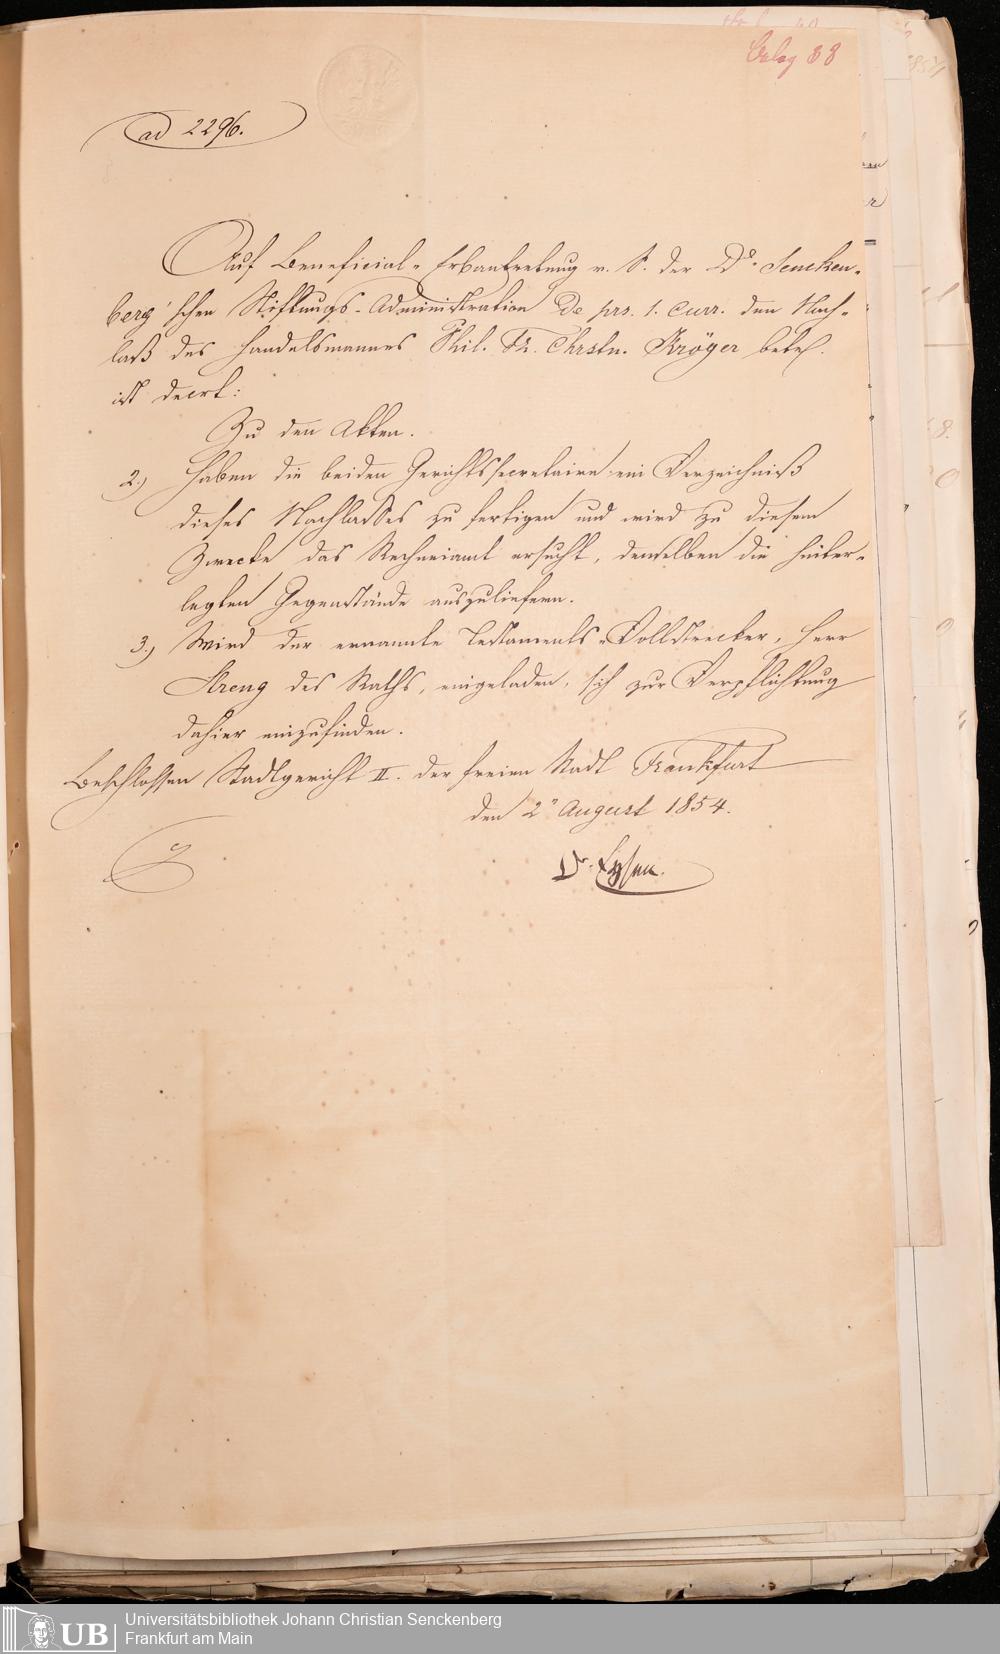 Beleg 88
ad 2296.
Auf Beneficial-Erbantretung v. S. der Dr. Sencken-
berg'schen Stiftungs-Administration de prs. 1. curr. den Nach-
laß des Handelsmannes Phil. Fr. Chrstn. Kröger betr.
ist decrt:
Zu den Akten.
2.) Haben die beiden Gerichtssecretaire ein Verzeichniß
dieses Nachlasses zu fertigen und wird zu diesem
Zwecke das Rechneiamt ersucht, denselben die hinter-
legten Gegenstände auszuliefern.
3.) Wird der ernannte Testaments-Vollstrecker, Herr
Streng des Raths, eingeladen, sich zur Verpflichtung
dahier einzufinden.
Beschlossen Stadtgericht II. der freien Stadt Frankfurt
den 2n August 1854.
Dr. Eysen.
UB
Universitätsbibliothek Johann Christian Senckenberg
Frankfurt am Main